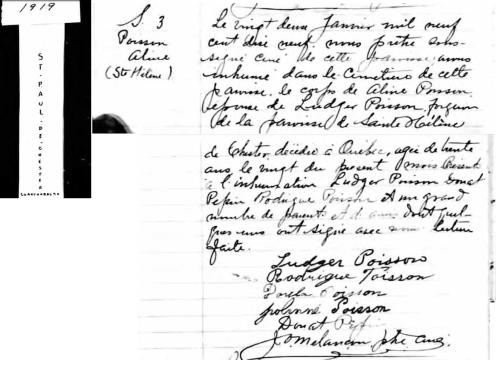 1919
ST-PAUL-DE-CHESTER
S. 3
Poisson
Aline
(Ste Hélène)
Le vingt deux Janvier mil neuf
cent dix neuf nous prêtre sous-
signé curé de cette paroisse avons
inhumé dans le cimetière de cette
paroisse le corps de Aline Poisson,
épouse de Ludger Poisson, forgeron
de la paroisse de Sainte Hélène
de Chester, décédée à Québec, agée de trente
ans le vingt du présent mois Présents
à l'inhumation Ludger Poisson Donat
Pepin Rodrigue Poisson et un grand
nombre de parents et d'amis dont quel-
ques uns ont signé avec nous lecture
faite.
Ludger Poisson
Rodrigue Poisson
Poisson
Poisson
Donat Pepin
J O Melançon ptre curé.